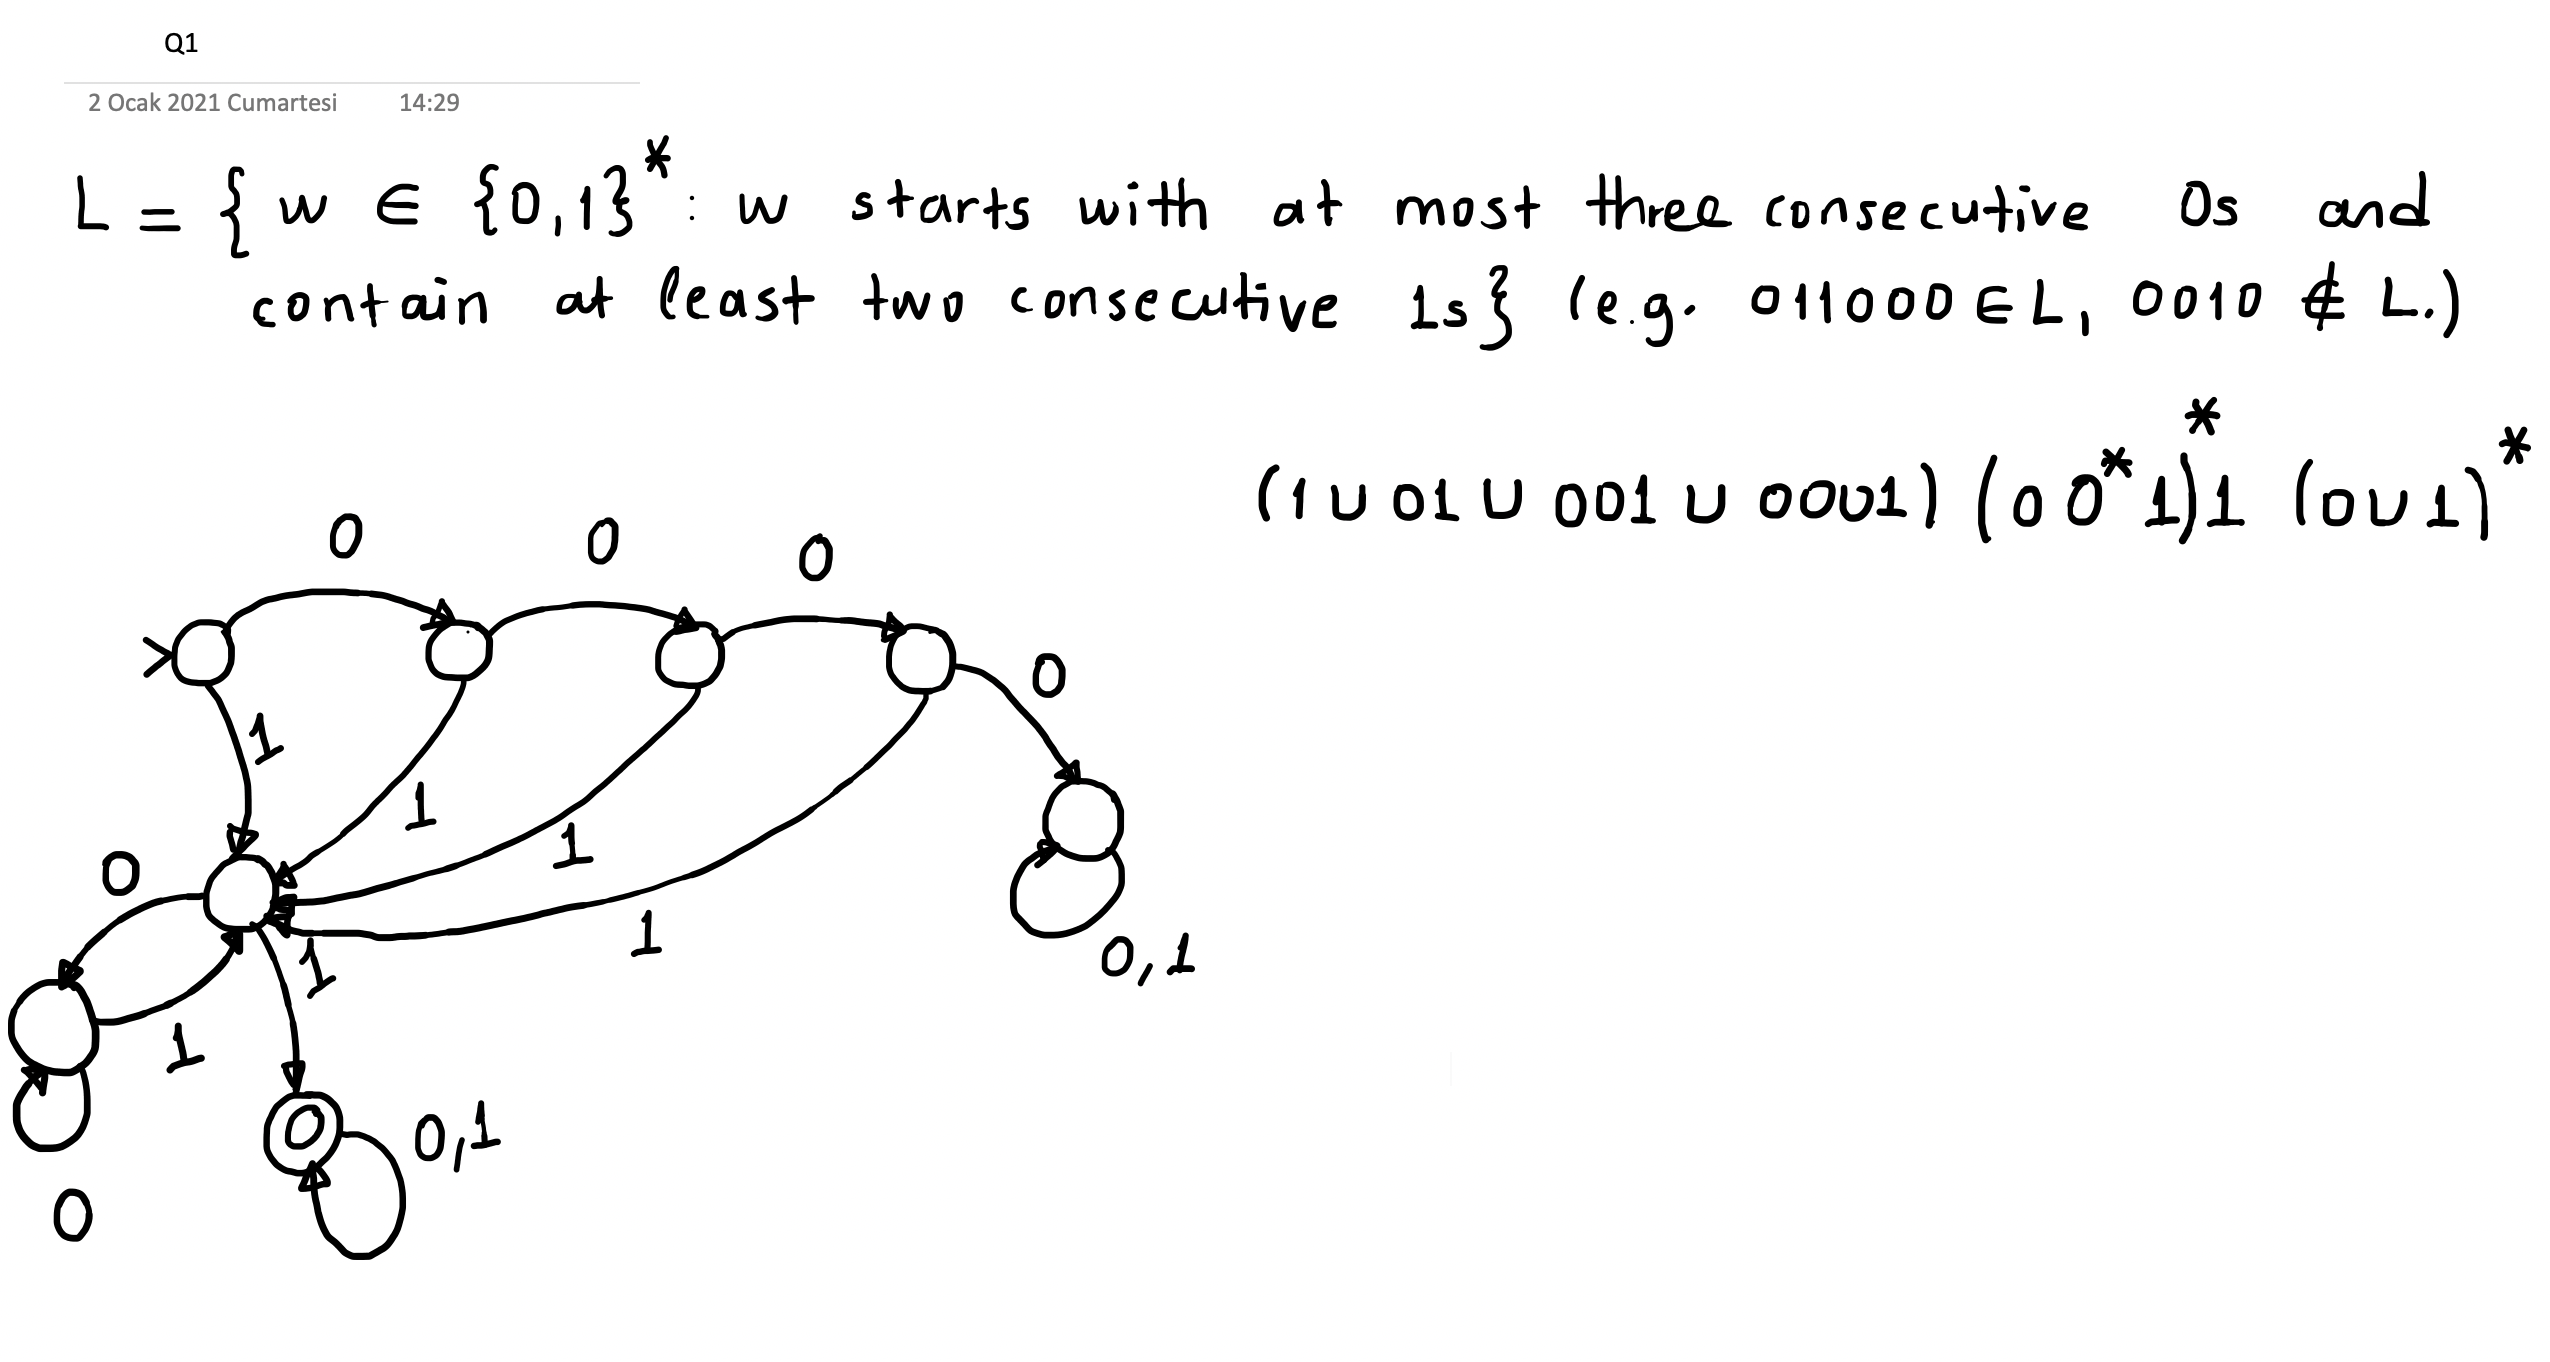 Q1
2 Ocak 2021 Cumartesi 14:29
L = { w ∈ {0,1}* : w starts with at most three consecutive 0s and
contain at least two consecutive 1s} (e.g. 011000 ∈ L, 0010 ∉ L.)
(1 ∪ 01 ∪ 001 ∪ 0001) (00*1)*1 (0∪1)*
0 0 0
0
1
1
1
0
1
1
0,1
1
0,1
0